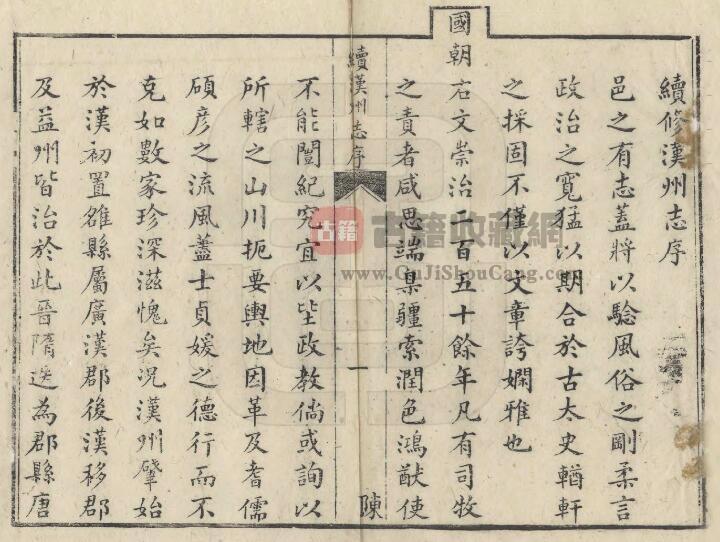 續修漢州志序
邑之有志蓋將以騐風俗之剛柔言
政治之寬猛以期合於古太史輶軒
之採固不僅以文章誇嫻雅也
國朝右文崇治二百五十餘年凡有司牧
之責者咸思端臬疆索潤色鴻猷使
續漢州志序 一 陳
不能闓紀究宜以坒政教倘或詢以
所轄之山川扼要輿地因革及耆儒
碩彥之流風藎士貞媛之德行而不
克如數家珍深滋愧矣況漢州肇始
於漢初置雒縣屬廣漢郡後漢移郡
及益州皆治於此晉隋迭為郡縣唐
古籍 古籍收藏網
www.GuJiShouCang.com